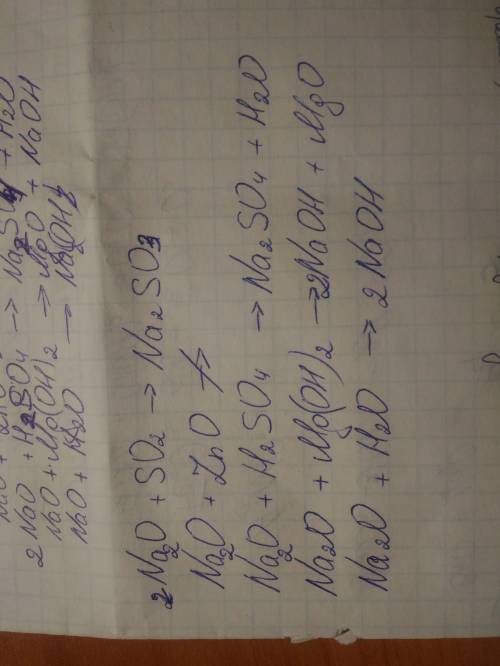 2 NaO + H2SO4 → Na2SO4 + H2O
NaO + Mg(OH)2 → MgO + NaOH
NaO + H2O →
2 Na2O + SO2 → Na2SO3
Na2O + ZnO ↛
Na2O + H2SO4 → Na2SO4 + H2O
Na2O + Mg(OH)2 → 2NaOH + MgO
Na2O + H2O → 2 NaOH